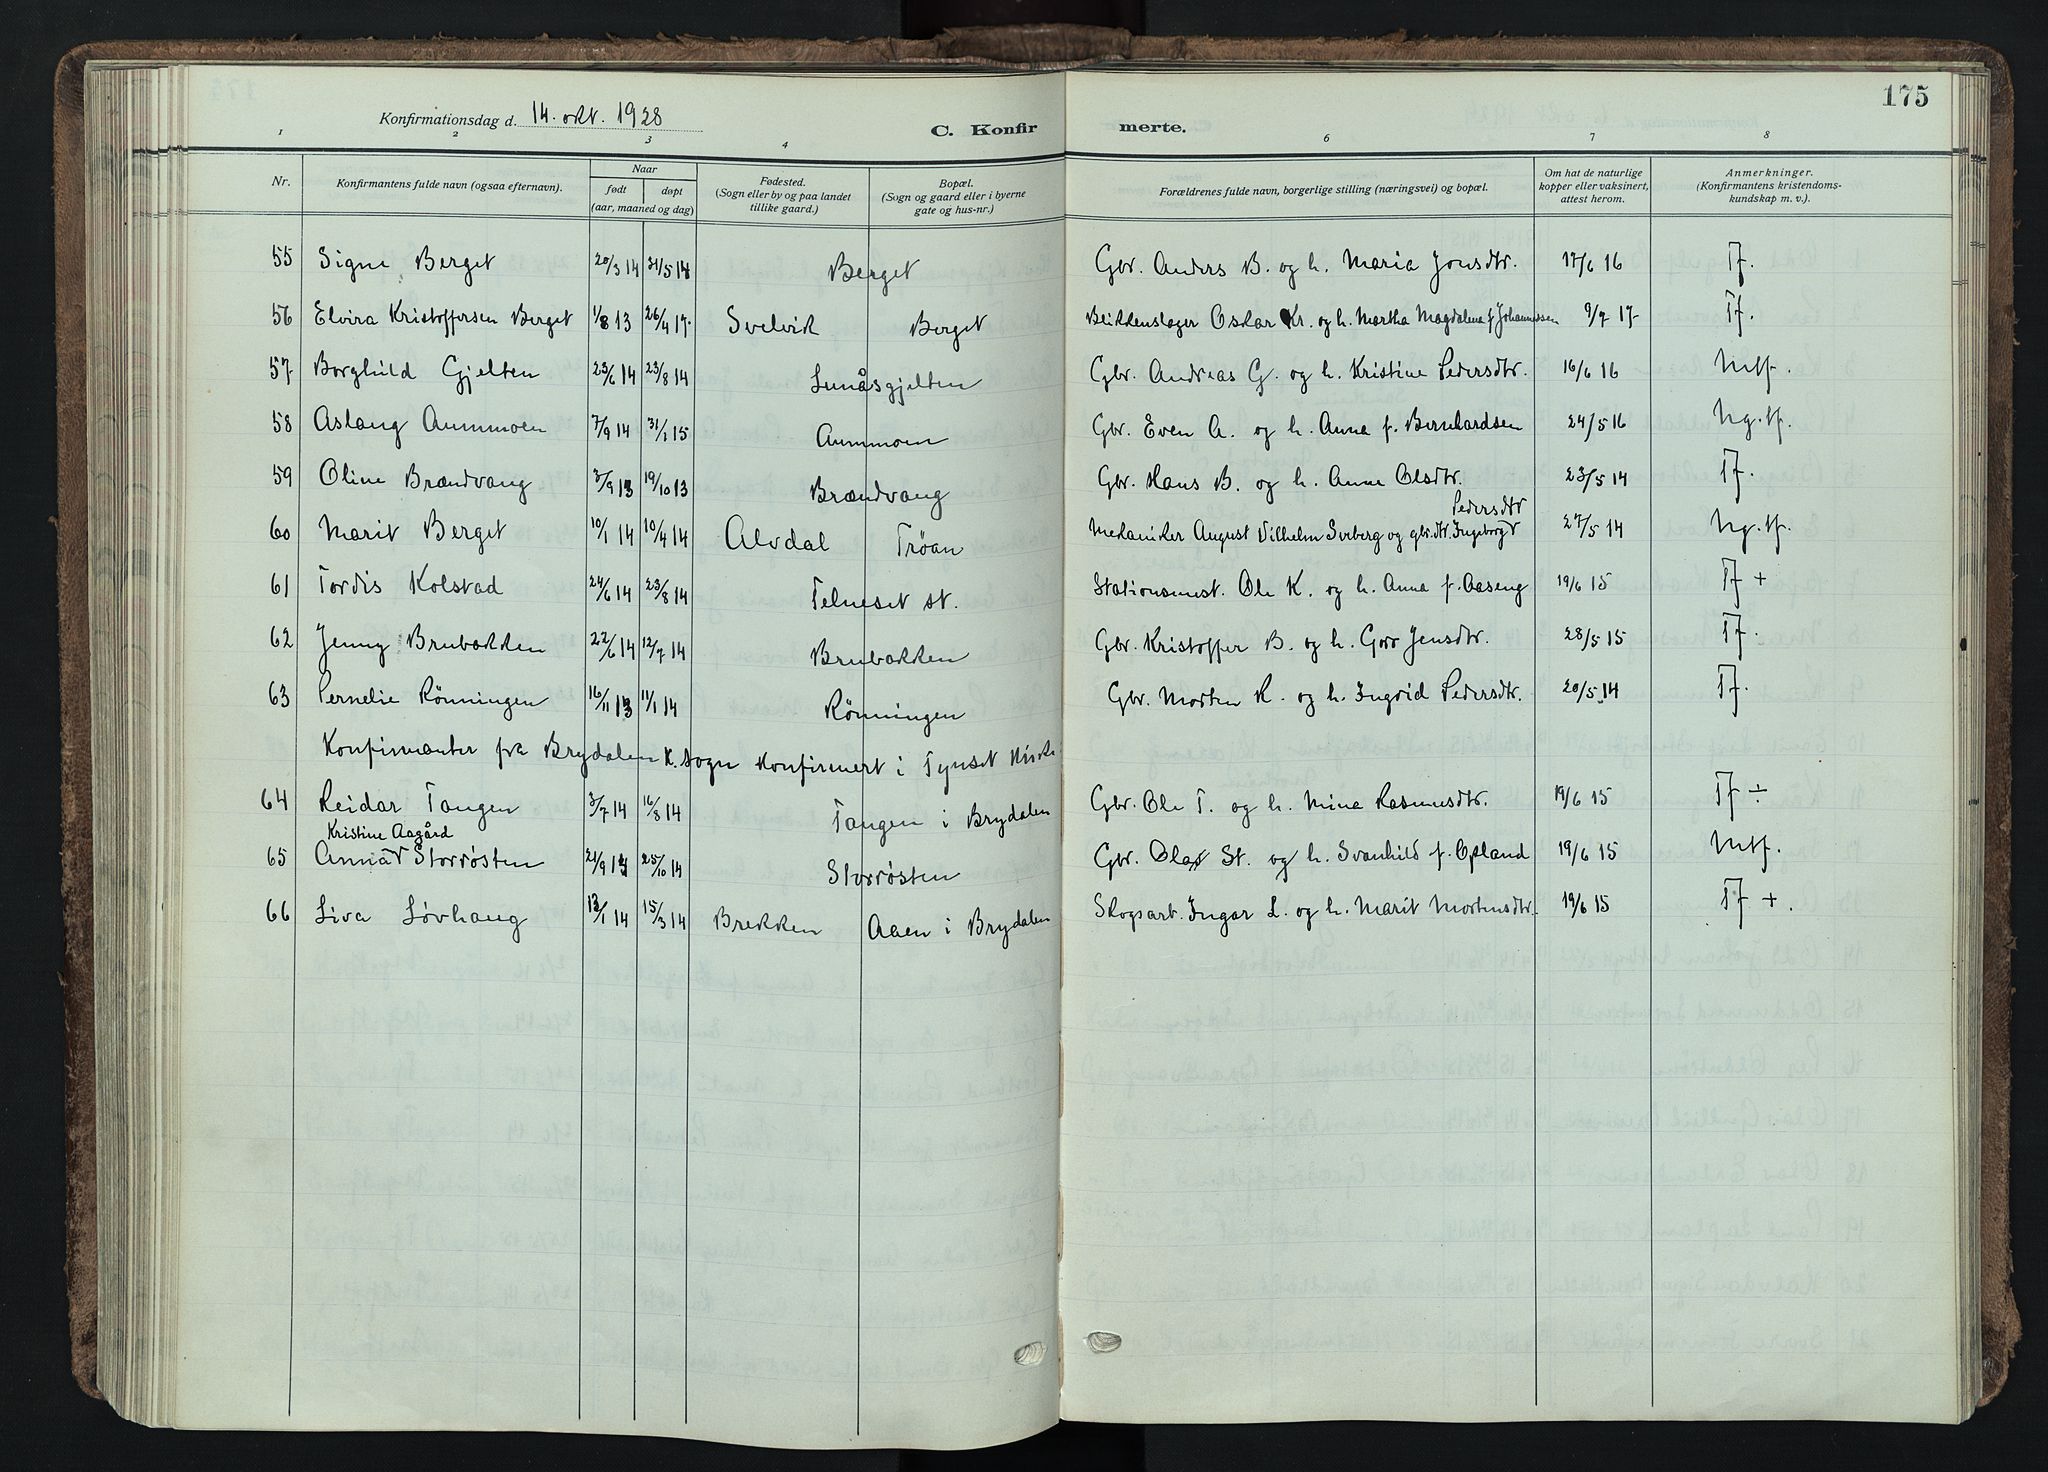 175
Konfirmationsdag d. 14. okt. 1928
C. Konfirmerte.
1 2 3 4 6 7 8
Nr. Konfirmantens fulde navn (ogsaa efternavn). Naar født døpt (aar, maaned og dag) Fødested. (Sogn eller by og paa landet tillike gaard.) Bopæl. (Sogn og gaard eller i byerne gate og hus-nr.) Forældrenes fulde navn, borgerlige stilling (næringsvei) og bopæl. Om hat de naturlige kopper eller vaksinert, attest herom. Anmerkninger. (Konfirmantens kristendomskundskap m. v.).
55 Signe Berget 20/3 14 31/5 14 Berget Gbr. Anders B. og h. Maria Jonsdtr. 17/6 16 Tf.
56 Elvira Kristoffersen Berget 1/8 13 26/4 17. Svelvik Berget Blikkenslager Oskar Kr. og h. Martha Magdalena f. Johannessen 9/7 17 Tf.
57 Borghild Gjelten 23/6 14 23/8 14 Lunåsgjelten Gbr. Andreas G. og h. Kristine Pedersdtr. 16/6 16 Mtf.
58 Aslaug Aummoen 7/9 14 31/1 15 Aummoen Gbr. Even A. og h. Anna f. Bernhardsen 24/5 16 Ng. tf.
59 Oline Brændvang 3/9 13 19/10 13 Brændvang Gbr. Hans B. og h. Anne Olsdtr. 23/5 14 Tf.
60 Marit Berget 10/1 14 10/4 14 Alvdal Trøan Mekaniker August Vilhelm Sveberg og gbr.dtr. Ingeborg Pedersdtr 27/5 14 Ng. tf.
61 Tordis Kolstad 24/6 14 23/8 14 Telneset st. Stationsmest. Ole K. og h. Anna f. Aaseng 19/6 15 Tf +
62 Jenny Brubakken 22/6 14 12/7 14 Brubakken Gbr. Kristoffer B. og h. Goro Jensdtr. 28/5 15 Tf.
63 Pernelie Rönningen 16/11 13 11/1 14 Rönningen Gbr. Morten R. og h. Ingrid Pedersdtr. 20/5 14 Tf.
Konfirmanter fra Brydalen K. sogn konfirmert i Tynset Kirke
64 Reidar Tangen 3/7 14 16/8 14 Tangen i Brydalen Gbr. Ole T. og h. Mina Rasmusdtr. 19/6 15 Tf ÷
Kristine Aagård
65 Anna Storrøsten 21/9 14 25/10 14 Storrøsten Gbr. Olaf St. og h. Svanhild f. Opland 19/6 15 Mtf.
66 Liva Løvhaug 12/1 14 15/3 14 Brekken Aaen i Brydalen Skogsarb. Ingar L. og h. Marit Mortensdtr. 19/6 15 Tf +.